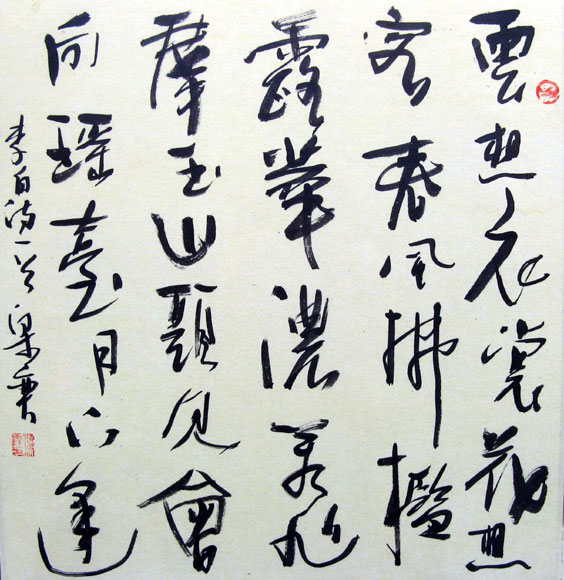 雲想衣裳花想
容春風拂檻
露華濃若非
羣玉山頭見會
向瑤臺月下逢
李白詩一首梁